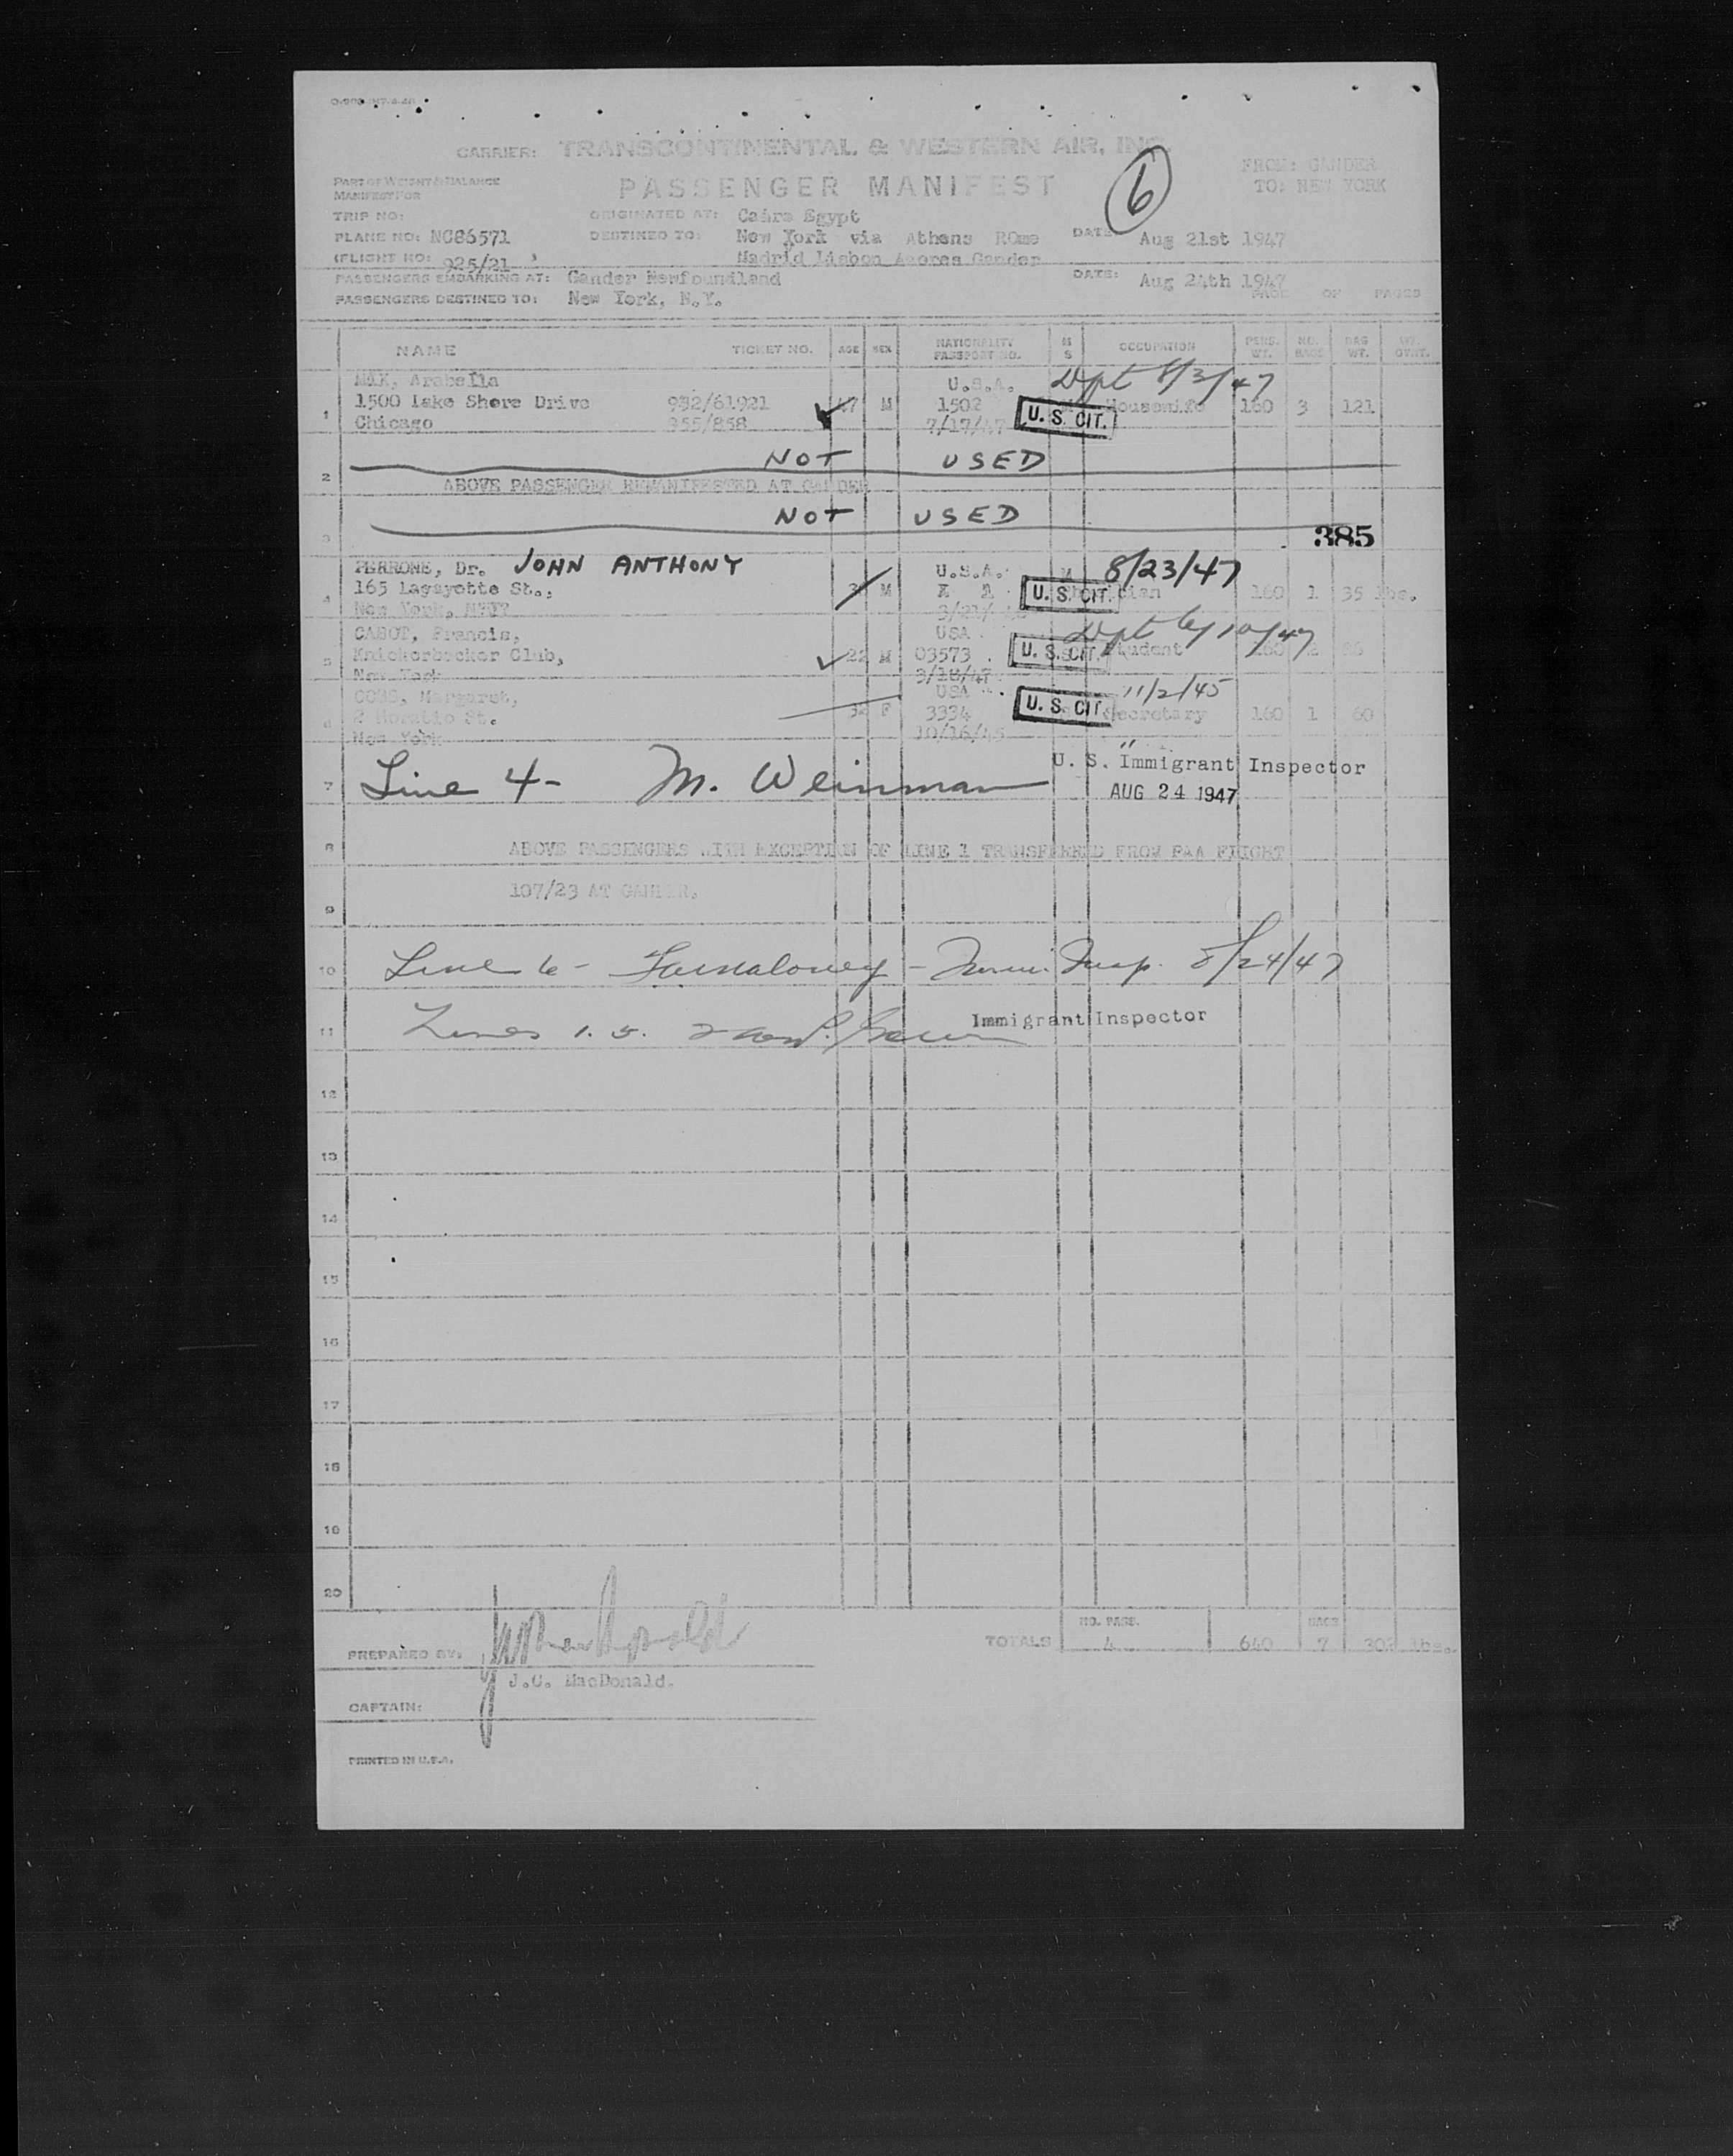 CARRIER: TRANSCONTINENTAL & WESTERN AIR, INC.
FROM: GANDER
TO: NEW YORK
PART OF WEIGHT & BALANCE
MANIFEST FOR
PASSENGER MANIFEST
6
TRIP NO:
ORIGINATED AT: Cairo Egypt
PLANE NO: NC86571
DESTINED TO: New York via Athens ROme
DATE: Aug 21st 1947
(FLIGHT NO: 925/21 )
Madrid Lisbon Azores Gander
PASSENGERS EMBARKING AT: Gander Newfoundland
DATE: Aug 24th 1947
PASSENGERS DESTINED TO: New York, N.Y.
PAGE OF PAGES
NAME TICKET NO. AGE SEX NATIONALITY PASSPORT NO. M S OCCUPATION PERS. WT. NO. BAGS BAG WT. WT. OVRT.
Arabella U.S.A. Dpt 8/3/47
1 1500 Lake Shore Drive 932/61921 M 1502 U. S. CIT. Housewife 160 3 121
Chicago 355/858 7/17/47
2 NOT USED
ABOVE PASSENGER REMANIFESTED AT GANDER
3 NOT USED
385
PERRONE, Dr. JOHN ANTHONY U.S.A. M 8/23/47
4 165 Lagayette St., M U. S. CIT. 160 1 35 lbs.
New York,
CABOT, Francis, USA Dpt 6/10/47
5 Knickerbocker Club, 22 M 03573 U. S. CIT. Student 160 2
New York 3/18/47
Margaret, USA 11/2/45
6 2 Horatio St. 32 F 3334 U. S. CIT. Secretary 160 1 60
New York 10/16/45
U. S. Immigrant Inspector
7 Line 4- M. Weinman
AUG 24 1947
8 ABOVE PASSENGERS WITH EXCEPTION OF LINE 1 TRANSFERRED FROM PAA FLIGHT
107/23 AT GANDER.
9
10 Line 6- - Imm. Insp. 8/24/47
11 Lines 1. 5. Immigrant Inspector
12
13
14
15
16
17
18
19
20
TOTALS NO. PASS. 4 640 BAGS 7 302 lbs.
PREPARED BY:
J.C. MacDonald.
CAPTAIN:
PRINTED IN U.S.A.